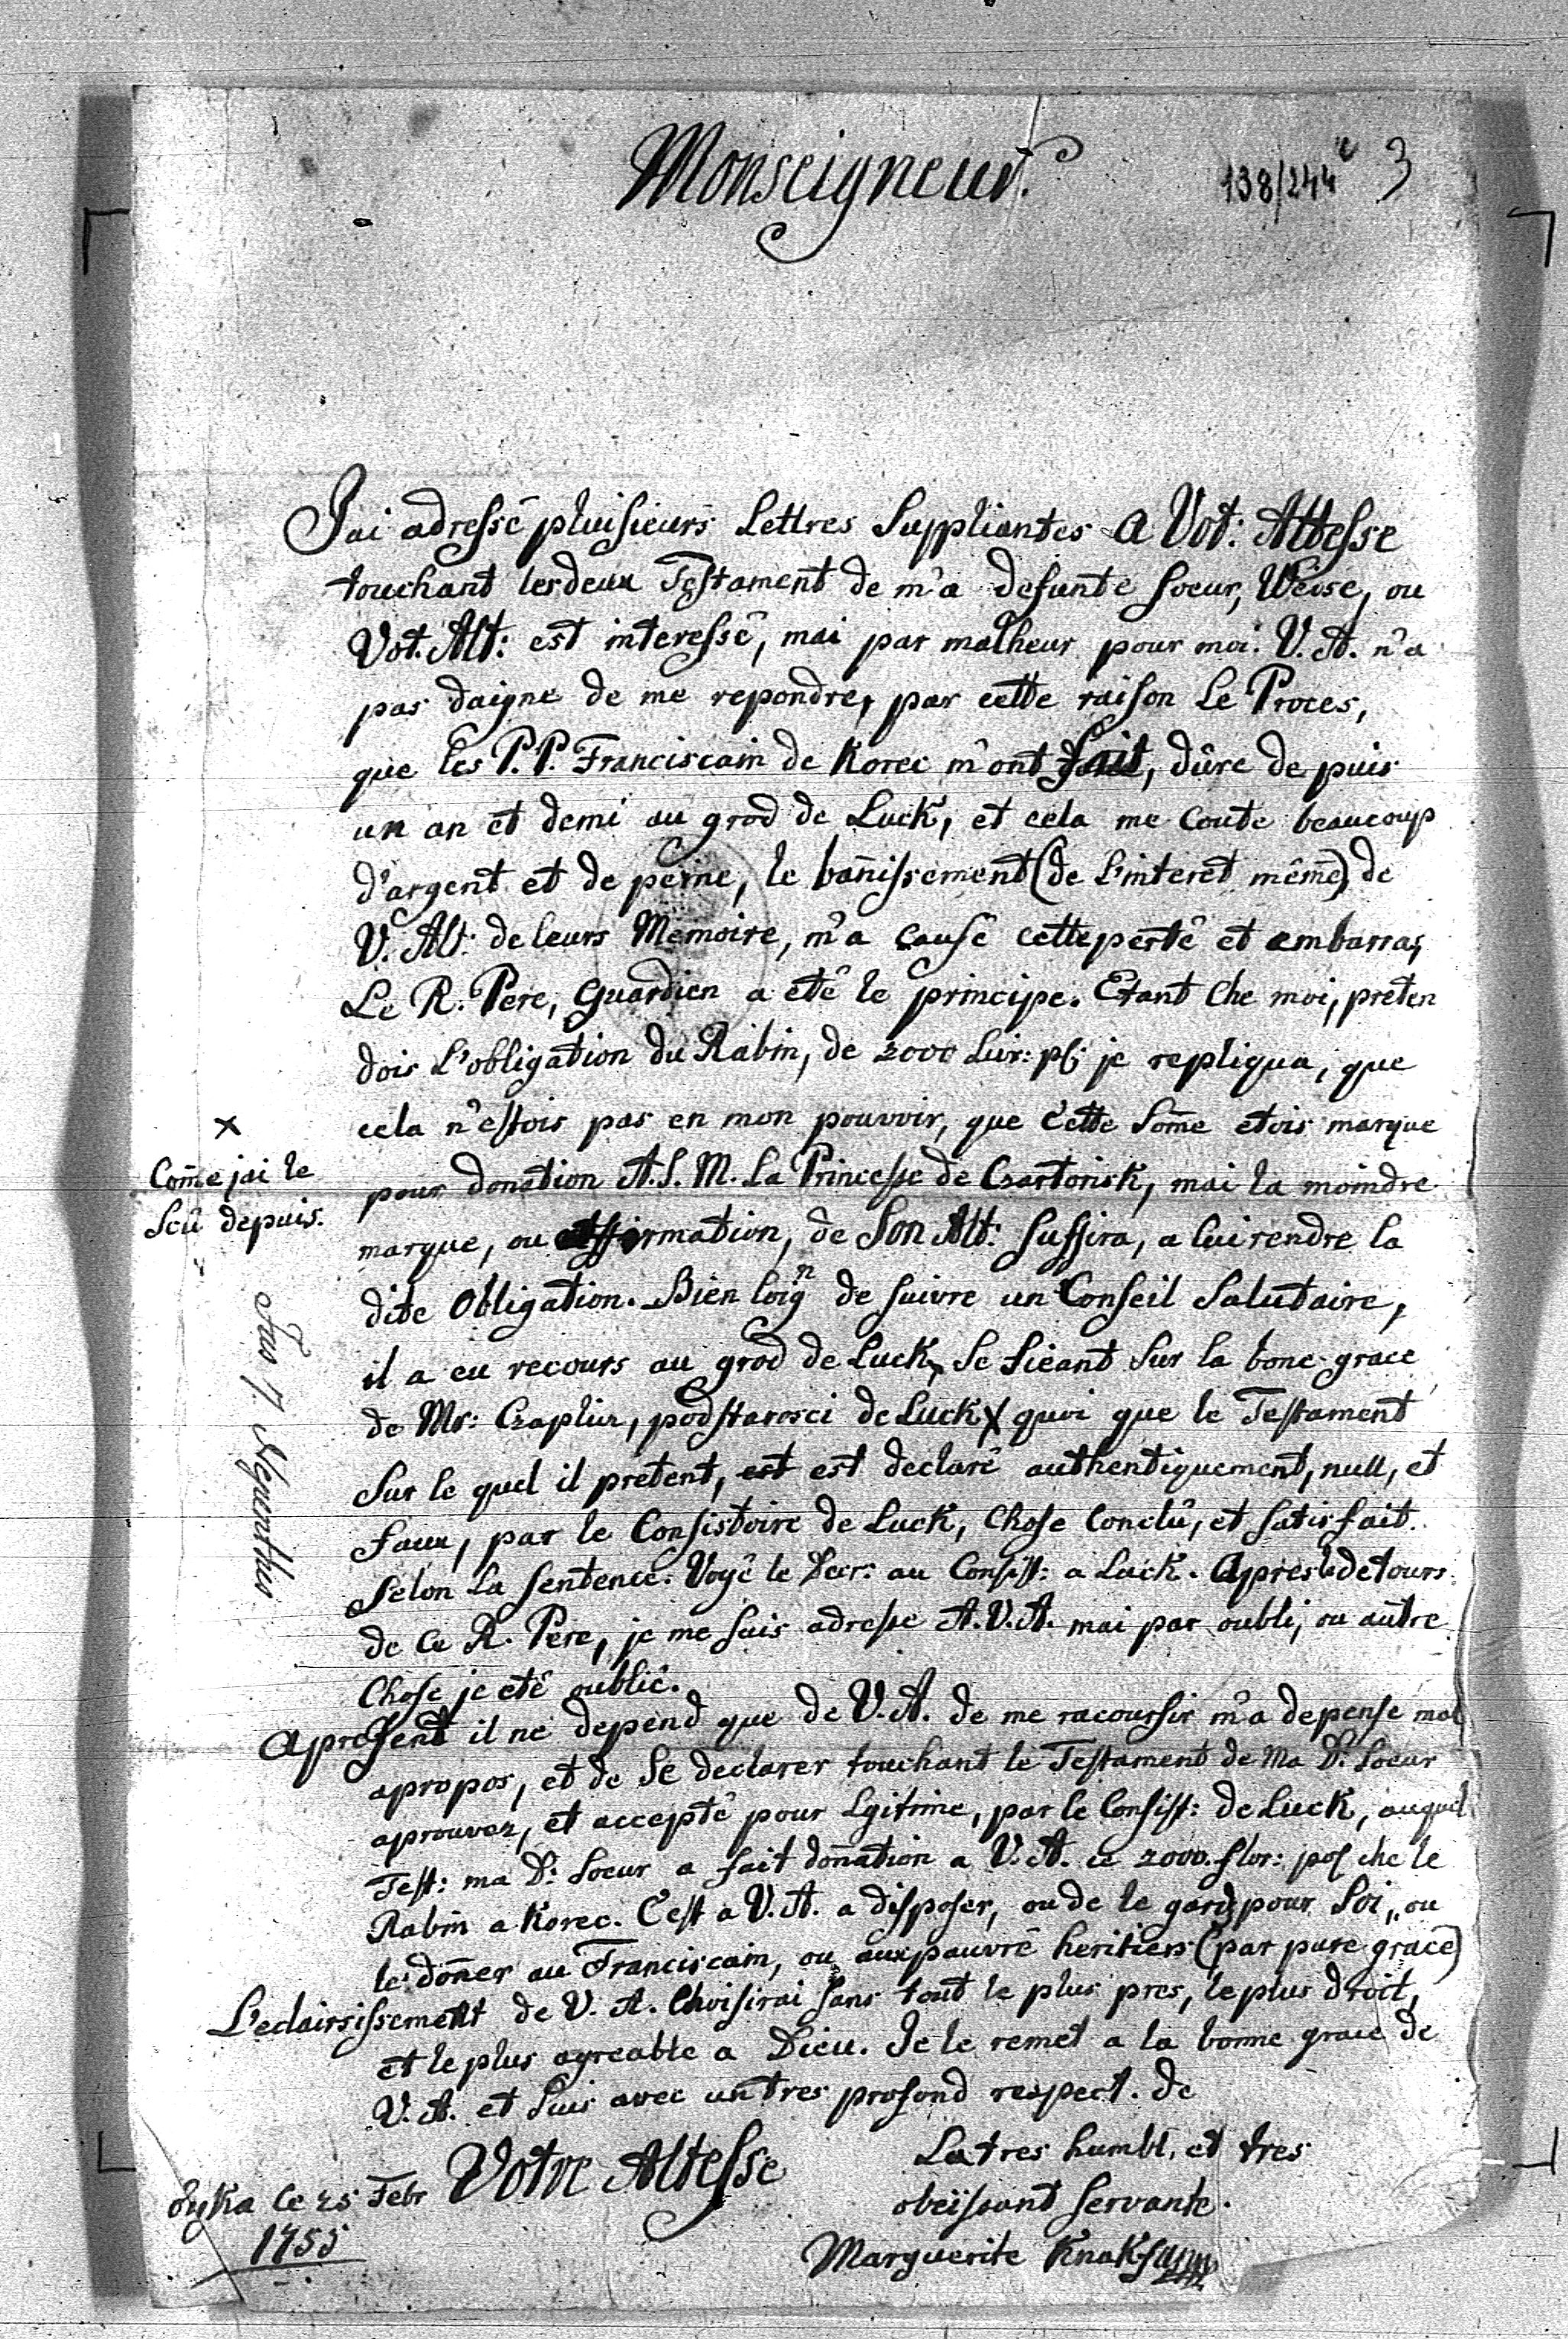 Monseigneur.
138/244 3
J'ai adressé pluisieurs Lettres Suppliantes a Vot: Altesse
touchant les deux Testament de m'a defunte soeur, Weise, ou
Vot. Alt: est interessé, mai par malheur pour moi. V. A. n'a
pas daigne de me repondre, par cette raison Le Proces,
que les P.P. Franciscain de Korec m'ont fait, dûre de puis
un an et demi au grod de Luck, et cela me coute beaucoup
d'argent et de peine, le banissement (de l'interet même) de
V. Alt: de leurs Memoire, m'a causé cette perté et embarras,
Le R. Pere, Guardien a eté le principe. Etant Che moi, preten
dois L'obligation du Rabin, de 2000 Luir: pf: je repliqua, que
cela n'estois pas en mon pouvoir, que cette Some etois marque
pour donation A.S.M. La Princesse de Czartorisk, mai la moindre
marque, ou affirmation, de Son Alt: suffira, a lui rendre la
dite Obligation. Bien loign de suivre un Conseil Salutaire,
il a eu recours au grod de Luck, se fieant Sur la bone grace
de Mr: Czaplin, podstarosci de Luck X quoi que le Testament
Sur le quel il pretent, est est declaré authentiquement, null, et
faux, par le Consistoire de Luck, Chose Conclû, et satisfait.
Selon la sentence. Voyé le Decr: au Consist: a Luck. Apres le detours
de Ce R. Pere, je me suis adresse A.V.A. mai par oubli, ou autre
Chose je eté oublié.
X
Come jai le
sçû depuis.
Apresent il ne depend que de V.A. de me racoursir m'a depense mal
apropos, et de Se declarer touchant le Testament de Ma D: Soeur
aprouvez, et accepté pour Lgitime, par le Consist: de Luck, auquel
Test: ma D: Soeur a fait donation a V.A. ce 2000. flor: pol che le
Rabin a Korec. C'est a V.A. a disposer, ou de le gard pour Soi, ou
le doner au Franciscain, ou aux pauvré heritiers (par pure grace)
L'eclairsissement de V. A. Choisirai sans tout le plus pres, le plus droit,
et le plus agreable a Dieu. Je le remet a la bonne grace de
V. A. et Suis avec un tres profond respect. de
Votre Altesse
La tres humbl. et tres
obeissant Servante.
Marguerite Knaks
Oyka le 25 Febr
1755